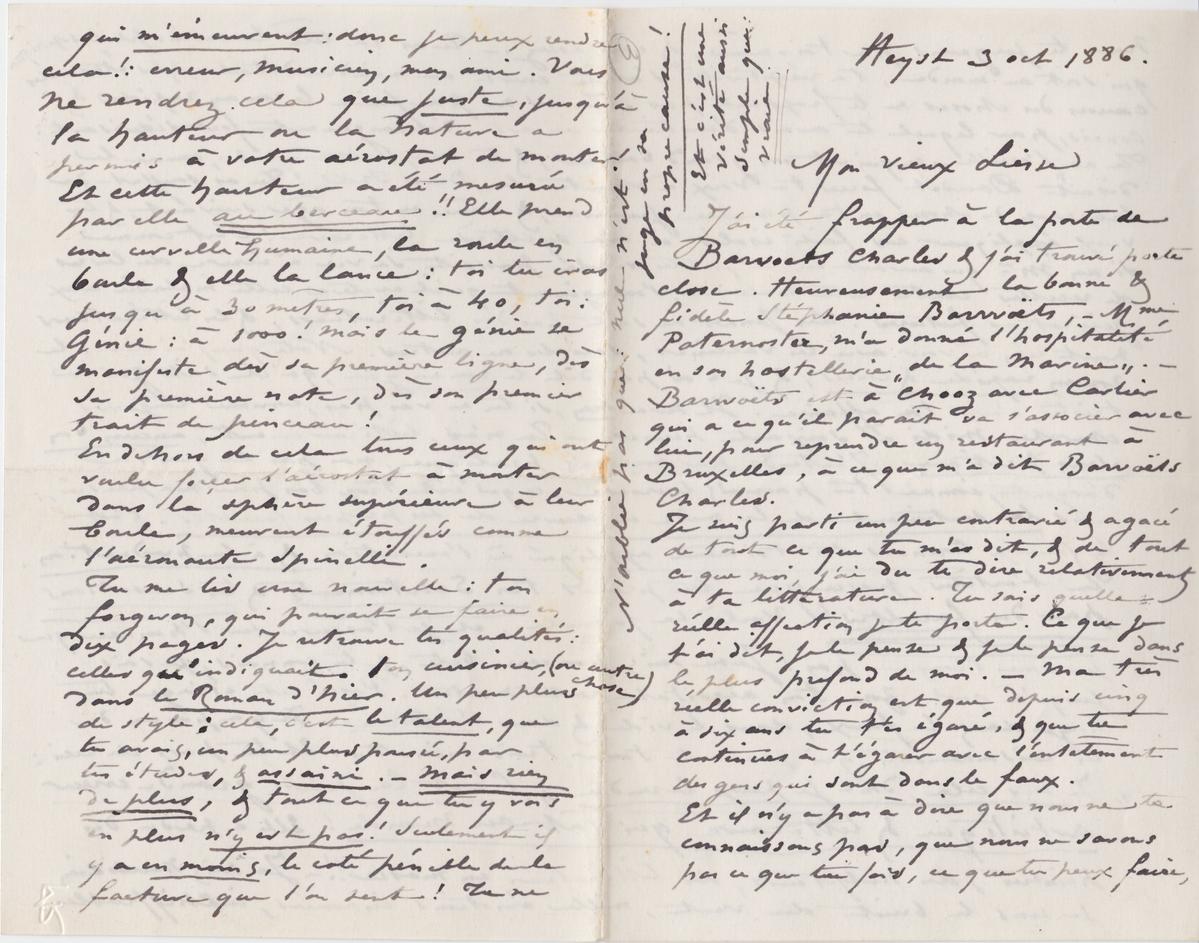 Heyst 3 oct 1886.
Mon vieux Liesse
J'ai été frapper à la porte de
Barwoëts Charles & j'ai trouvé porte
close. Heureusement la bonne &
fidèle Stéphanie Barwoëts, - Mme
Paternoster, m'a donné l'hospitalité
en son hostellerie „de la Marine„. -
Barwoëts est à Chooz avec Carlier
qui a ce qu'il parait va s'associer avec
lui, pour reprendre un restaurant à
Bruxelles, à ce que m'a dit Barwoëts
Charles.
Je suis parti un peu contrarié & agacé
de tout ce que tu m'as dit, & de tout
ce que moi, j'ai du te dire relativement
à ta littérature. Tu sais quelle
réelle affection je te porte. Ce que je
t'ai dit, je le pense & je le pense dans
le plus profond de moi. - Ma très
réelle conviction est que depuis cinq
à six ans tu t'es égaré, & que tu
continues à t'égarer avec l'entêtement
des gens qui sont dans le faux.
Et il n'y a pas à dire que nous ne te
connaissons pas, que nous ne savons
pas ce que tu fais, ce que tu peux faire,
qui m'émeuvent : donc je peux rendre
cela !: erreur, musicien, mon ami. Vous
ne rendrez cela que juste, jusqu'à
la hauteur ou la Nature a
permis à votre aérostat de monter
Et cette hauteur a été mesurée
par elle au berceau !! Elle prend
une cervelle humaine, la roule en
boule & elle la lance : toi tu iras
jusqu'à 30 mètres, toi à 40, toi :
Génie : à 1000 ! mais le génie se
manifeste dès sa première ligne, dès
sa première note, dès son premier
trait de pinceau !
En dehors de cela tous ceux qui ont
voulu forcer l'aérostat à monter
dans la sphère supérieure à leur
boule, meurent étouffés comme
l'aéronaute Spinelli.
Tu me lis une nouvelle : ton
forgeron, qui pouvait se faire en
dix pages. Je retrouve tes qualités :
celles qu'indiquait ton cuisinier, (ou autre chose)
dans le Roman d'hier. Un peu plus
de style : cela, c'est le talent, que
tu avais, un peu plus poussé, par
tes études, & assaini. - Mais rien
de plus, & tout ce que tu y vois
en plus n'y est pas ! Seulement il
y a en moins, le coté pénible de la
facture que l'on sent ! Tu ne
N'oublie pas que : nul n'est
juge en sa
propre cause !
Et c'est une
vérité aussi
simple que :
vraie !